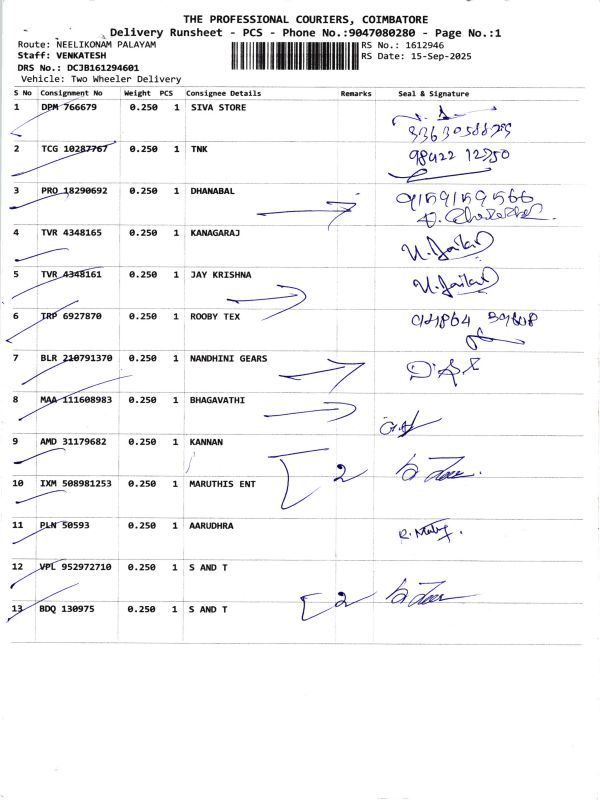 THE PROFESSIONAL COURIERS, COIMBATORE
Delivery Runsheet - PCS - Phone No.:9047080280 - Page No.:1
Route: NEELIKONAM PALAYAM
RS No.: 1612946
Staff: VENKATESH
RS Date: 15-Sep-2025
DRS No.: DCJB161294601
Vehicle: Two Wheeler Delivery
S No Consignment No Weight PCS Consignee Details Remarks Seal & Signature
1 DPM 766679 0.250 1 SIVA STORE
2 TCG 10287767 0.250 1 TNK 98422 12750
3 PRO 18290692 0.250 1 DHANABAL 9159159566
4 TVR 4348165 0.250 1 KANAGARAJ
5 TVR 4348161 0.250 1 JAY KRISHNA
6 TRP 6927870 0.250 1 ROOBY TEX
7 BLR 210791370 0.250 1 NANDHINI GEARS
8 MAA 111608983 0.250 1 BHAGAVATHI
9 AMD 31179682 0.250 1 KANNAN 2
10 IXM 508981253 0.250 1 MARUTHIS ENT
11 PLN 50593 0.250 1 AARUDHRA
12 VPL 952972710 0.250 1 S AND T
13 BDQ 130975 0.250 1 S AND T 2